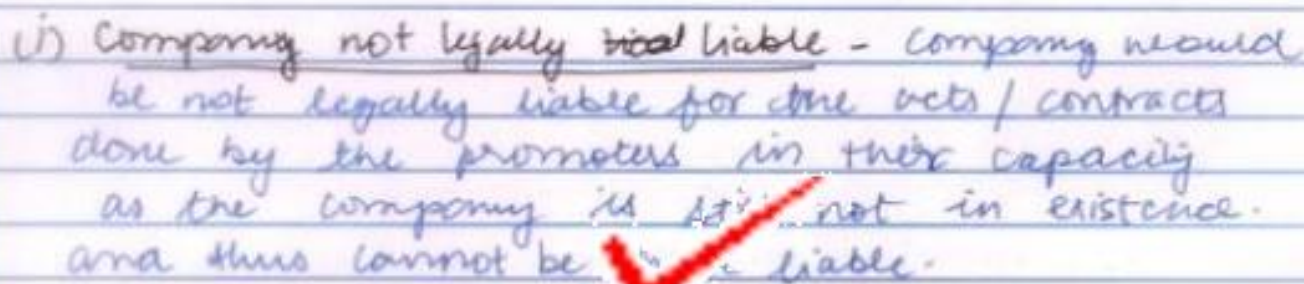 (i) Company not legally liable - Company would
be not legally liable for the acts / contracts
done by the promoters in their capacity
as the company is not in existence.
and thus cannot be liable.